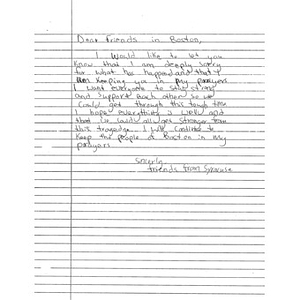 Dear friends in Boston,
I would like to let you
know that I am deeply sorry
for what has happend and that I
am keeping you in my prayers
I want everyone to stay strong
and support each other so we
could get through this tough time
I hope everything's well and
that we could all get stronger from
this tragedge. I will continue to
keep the people of Boston in my
prayers
Sincerly,
friends from Syracuse